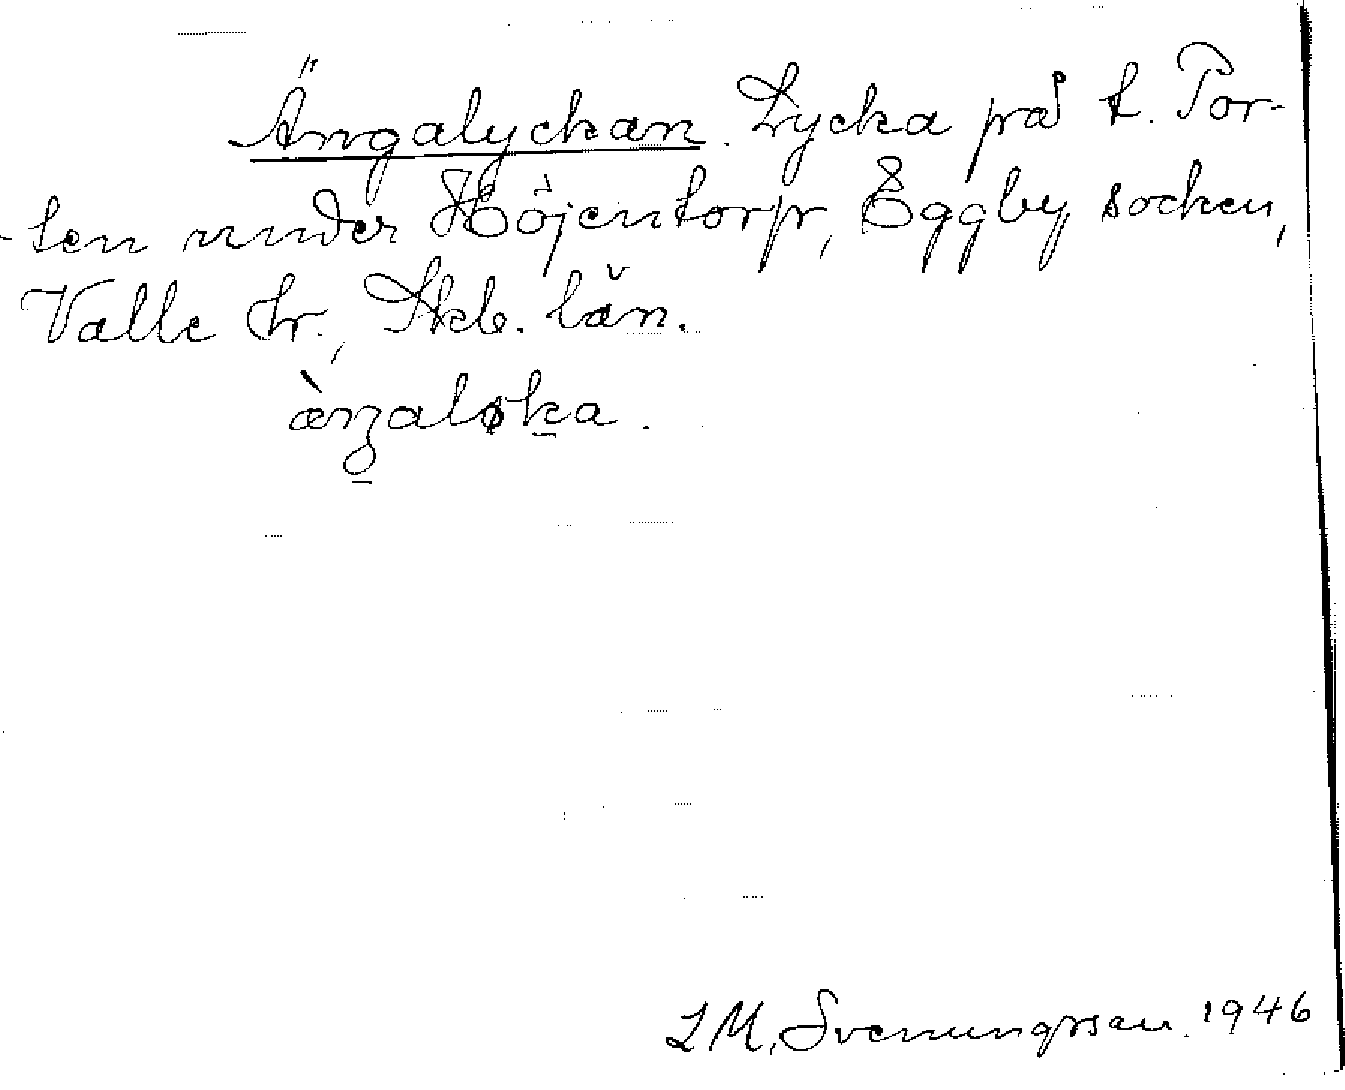 Ängalyckan. Lycka på t. Tor-
-ten under Höjentorp, Eggby socken,
Valle hr., Skb. län.
L M. Svenungsson. 1946